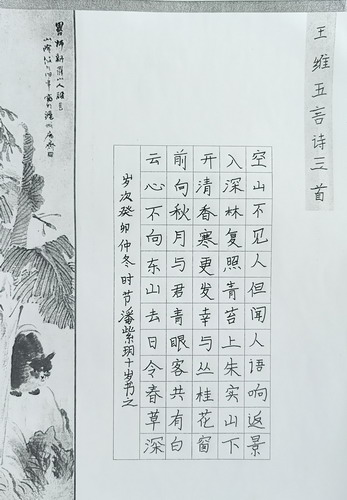 王维五言诗三首
空山不见人但闻人语响返景
入深林复照青苔上朱实山下
开清香寒更发幸与丛桂花窗
前向秋月与君青眼客共有白
云心不向东山去日令春草深
岁次癸卯仲冬时节潘紫玥十岁书之